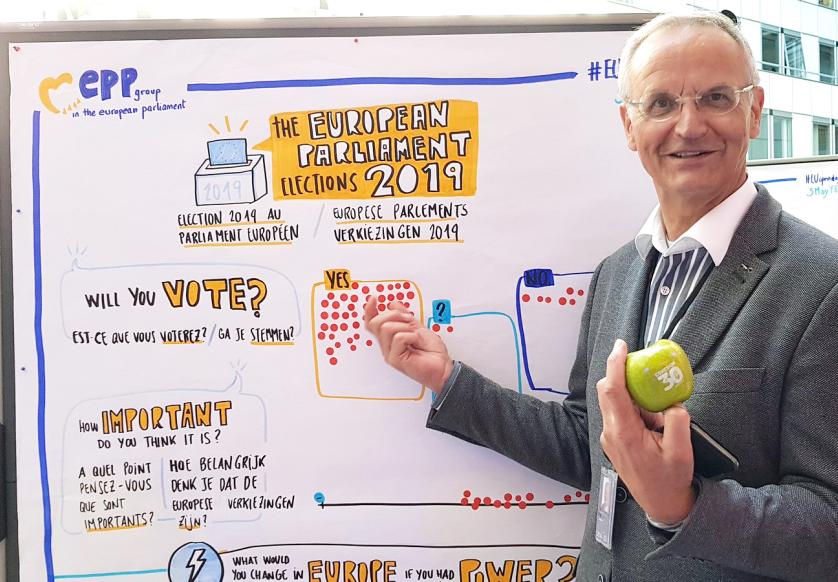 epp group
in the european parliament
#EU
THE EUROPEAN
PARLIAMENT
ELECTIONS 2019
2019
ELECTION 2019 AU
PARLIAMENT EUROPÉEN
/ EUROPESE PARLEMENTS
VERKIEZINGEN 2019
WILL YOU VOTE?
EST-CE QUE VOUS VOTEREZ? / GA JE STEMMEN?
YES
?
NO
HOW IMPORTANT
DO YOU THINK IT IS?
A QUEL POINT
PENSEZ-VOUS
QUE SONT
IMPORTANTS?
HOE BELANGRIJK
DENK JE DAT DE
EUROPESE VERKIEZINGEN
ZIJN?
WHAT WOULD
YOU CHANGE IN EUROPE IF YOU HAD POWER?